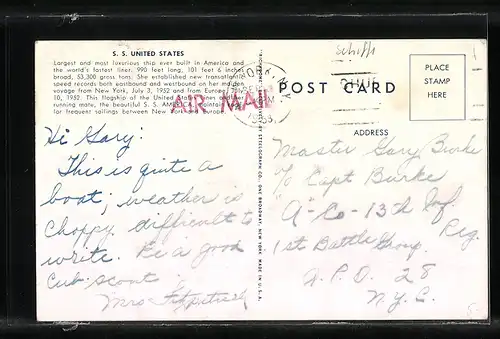 schiff
S. S. UNITED STATES
Largest and most luxurious ship ever built in America and
the world's fastest liner. 990 feet long, 101 feet 6 inches
broad, 53,300 gross tons. She established new transatlantic
speed records both eastbound and westbound on her maiden
voyage from New York, July 3, 1952 and from Europe, July
10, 1952. This flagship of the United States Lines and her
running mate, the beautiful S. S. AMERICA,
for frequent sailings between New York and Europe.
AIR MAIL
POST CARD
PLACE
STAMP
HERE
ADDRESS
Hi Gary:
This is quite a
boat; weather is
choppy difficult to
write. Be a good
Cub scout.
Mrs Fitzpatrick
Master Gary Burke
% Capt Burke
"A"-Co-13th Inf.
1st Battle Group Reg.
A.P.O. 28
N.Y.C.
BROADWAY, NEW YORK MADE IN U.S.A.